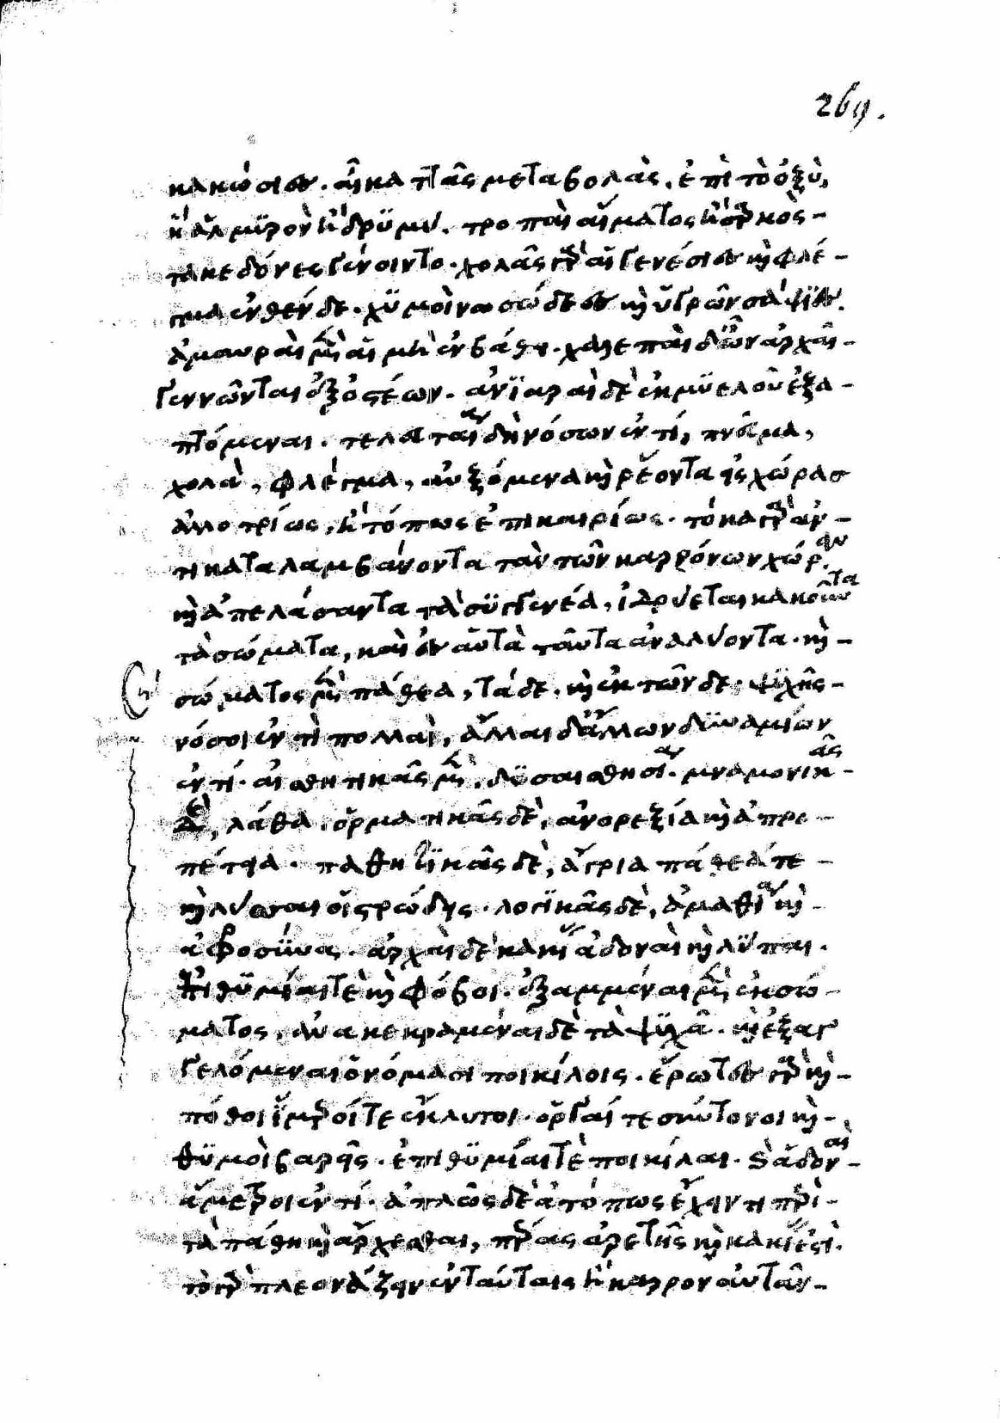 269.
κακώσιες. αἱ κατ τὰς μεταβολὰς. ἐπὶ τὸ ὀξὺ,
ἢ ἁλμϋρὸν ἢ δριμὺ. τροπαὶ αἵματος ἢ σαρκὸς
τακεδόνες γίνοιντο. χολᾶς γὰρ αἱ γενέσιες καὶ φλέ-
γμα ἐνθένδε. χϋμοὶ νοσώδεες καὶ ὑγρῶν σάψιες.
ἀμαυραὶ μὲν αἱ μὴ ἐν βάθει. χαλεπαὶ δὲ ὧν ἀρχαὶ
γεννῶνται ἐξ ὀστέων. ἀνϊαραὶ δὲ ἐκ μϋελοῦ ἐξα-
πτόμεναι. τελευταῖαι δὴ νόσων ἐντί, πνεῦμα,
χολὰ, φλέγμα, αὐξόμενα καὶ ῥέοντα εἰς χώρας
ἀλλοτρίως, ἢ τόπως ἐπικαιρίως. τόκα γὰρ ἀν-
τικαταλαμβάνοντα τὰν τῶν καρρόνων χώραν
καὶ ἀπελάσαντα τὰ σϋγγενέα, ἱδρύεται κακοῦντα
τὰ σώματα, καὶ ἐς αὐτὰ ταῦτα ἀναλύοντα. καὶ
σώματος μὲν πάθεα, τάδε. καὶ ἐκ τῶνδε ψϋχῆς
νόσοι ἐντὶ πολλαὶ, ἄλλαι δ᾽ ἄλλων δϋναμίων
ἐντί. αἰσθητικᾶς μὲν, δϋσαισθησίαν. μναμονικᾶς
δὲ, λάθα. ὁρματικᾶς δὲ, ἀνορεξία καὶ ἀπρο-
πέτεια. παθητϊκᾶς δὲ, ἄγρια πάθεά τε
καὶ λύσσαι οἰστρώδεις. λογϊκᾶς δὲ, ἀμαθία καὶ
ἀφροσύνα. ἀρχαὶ δὲ κακίας ἁδοναὶ καὶ λῦπαι.
ἐπιθϋμίαι τὲ καὶ φόβοι. ἐξαμμέναι μὲν ἐκ σώ-
ματος, ἀνακεκραμέναι δὲ τὰ ψϋχᾶ. καὶ ἐξαγ
γελόμεναι ὀνόμασι ποικίλοις. ἔρωτες γὰρ καὶ
πόθοι ἵμεροί τε ἔκλυτοι. ὀργαί τε σύντονοι καὶ
θϋμοὶ βαρεῖς. ἐπιθϋμίαι τὲ ποικίλαι. καὶ ἁδοναὶ
ἄμετροι ἐντί. ἁπλῶς δὲ ἀτόπως ἔχειν τι περὶ
τὰ πάθη καὶ ἄρχεσθαι, πέρας ἀρετῆς καὶ κακίας ἐστὶ.
τὸ γὰρ πλεονάζειν ἐν ταύταις ἢ κάρρον αὐτᾶν